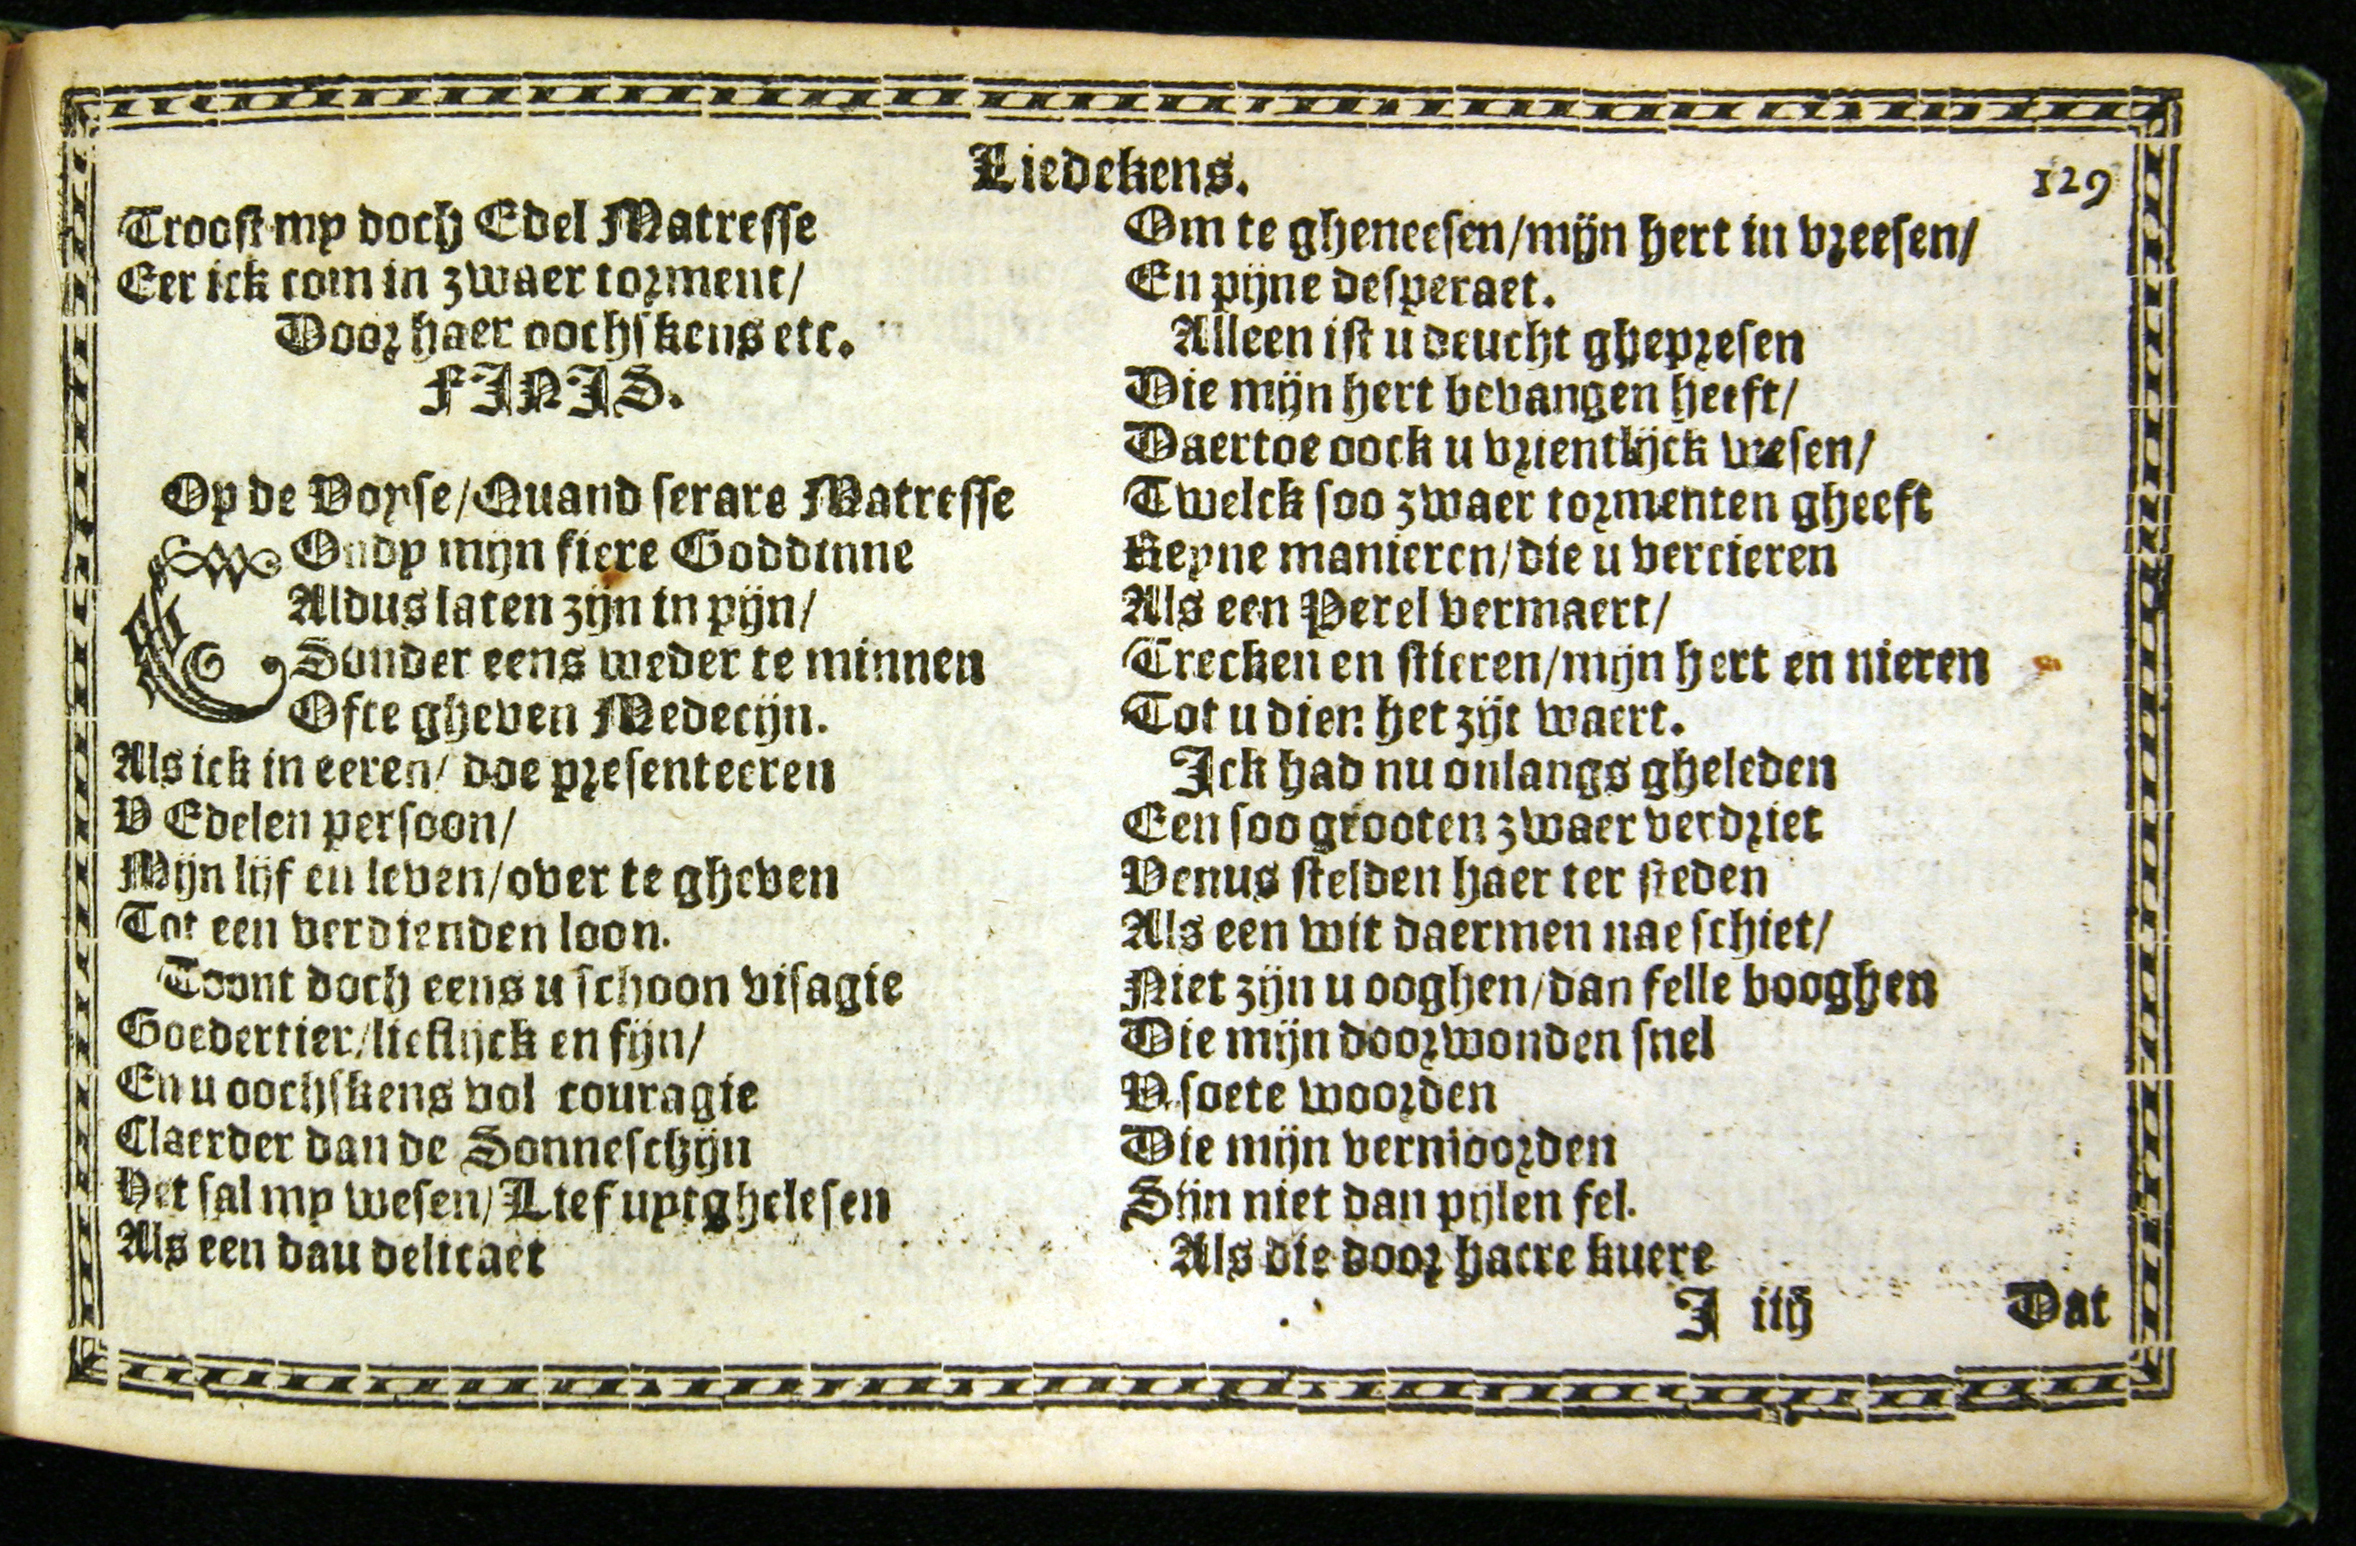 Liedekens.
129
Troost my doch Edel Matresse
Eer ick com in zwaer torment/
Door haer oochskens etc.
FINIS.
Op de Voyse/Quand serare Matresse
COndy mijn fiere Goddinne
Aldus laten zijn in pijn/
Sonder eens weder te minnen
Ofte gheven Medecijn.
Als ick in eeren/ doe presenteeren
V Edelen persoon/
Mijn lijf en leven/over te gheven
Tot een verdienden loon.
Toont doch eens u schoon visagie
Goedertier/lieflijck en fijn/
En u oochskens vol couragie
Claerder dan de Sonneschijn
Het sal my wesen/Lief uytghelesen
Als een dau delicaet
Om te gheneesen/mijn hert in vreesen/
En pijne desperaet.
Alleen ist u deucht ghepresen
Die mijn hert bevangen heeft/
Daertoe oock u vrientlijck wesen/
Twelck soo zwaer tormenten gheeft
Reyne manieren/die u vercieren
Als een Perel vermaert/
Trecken en stieren/mijn hert en nieren
Tot u dien het zijt waert.
Ick had nu onlangs gheleden
Een soo grooten zwaer verdriet
Venus stelden haer ter steden
Als een wit daermen nae schiet/
Niet zijn u ooghen/dan felle booghen
Die mijn doorwonden snel
V soete woorden
Die mijn vermoorden
Sijn niet dan pijlen fel.
Als die door haere kuere
I iiij
Dat